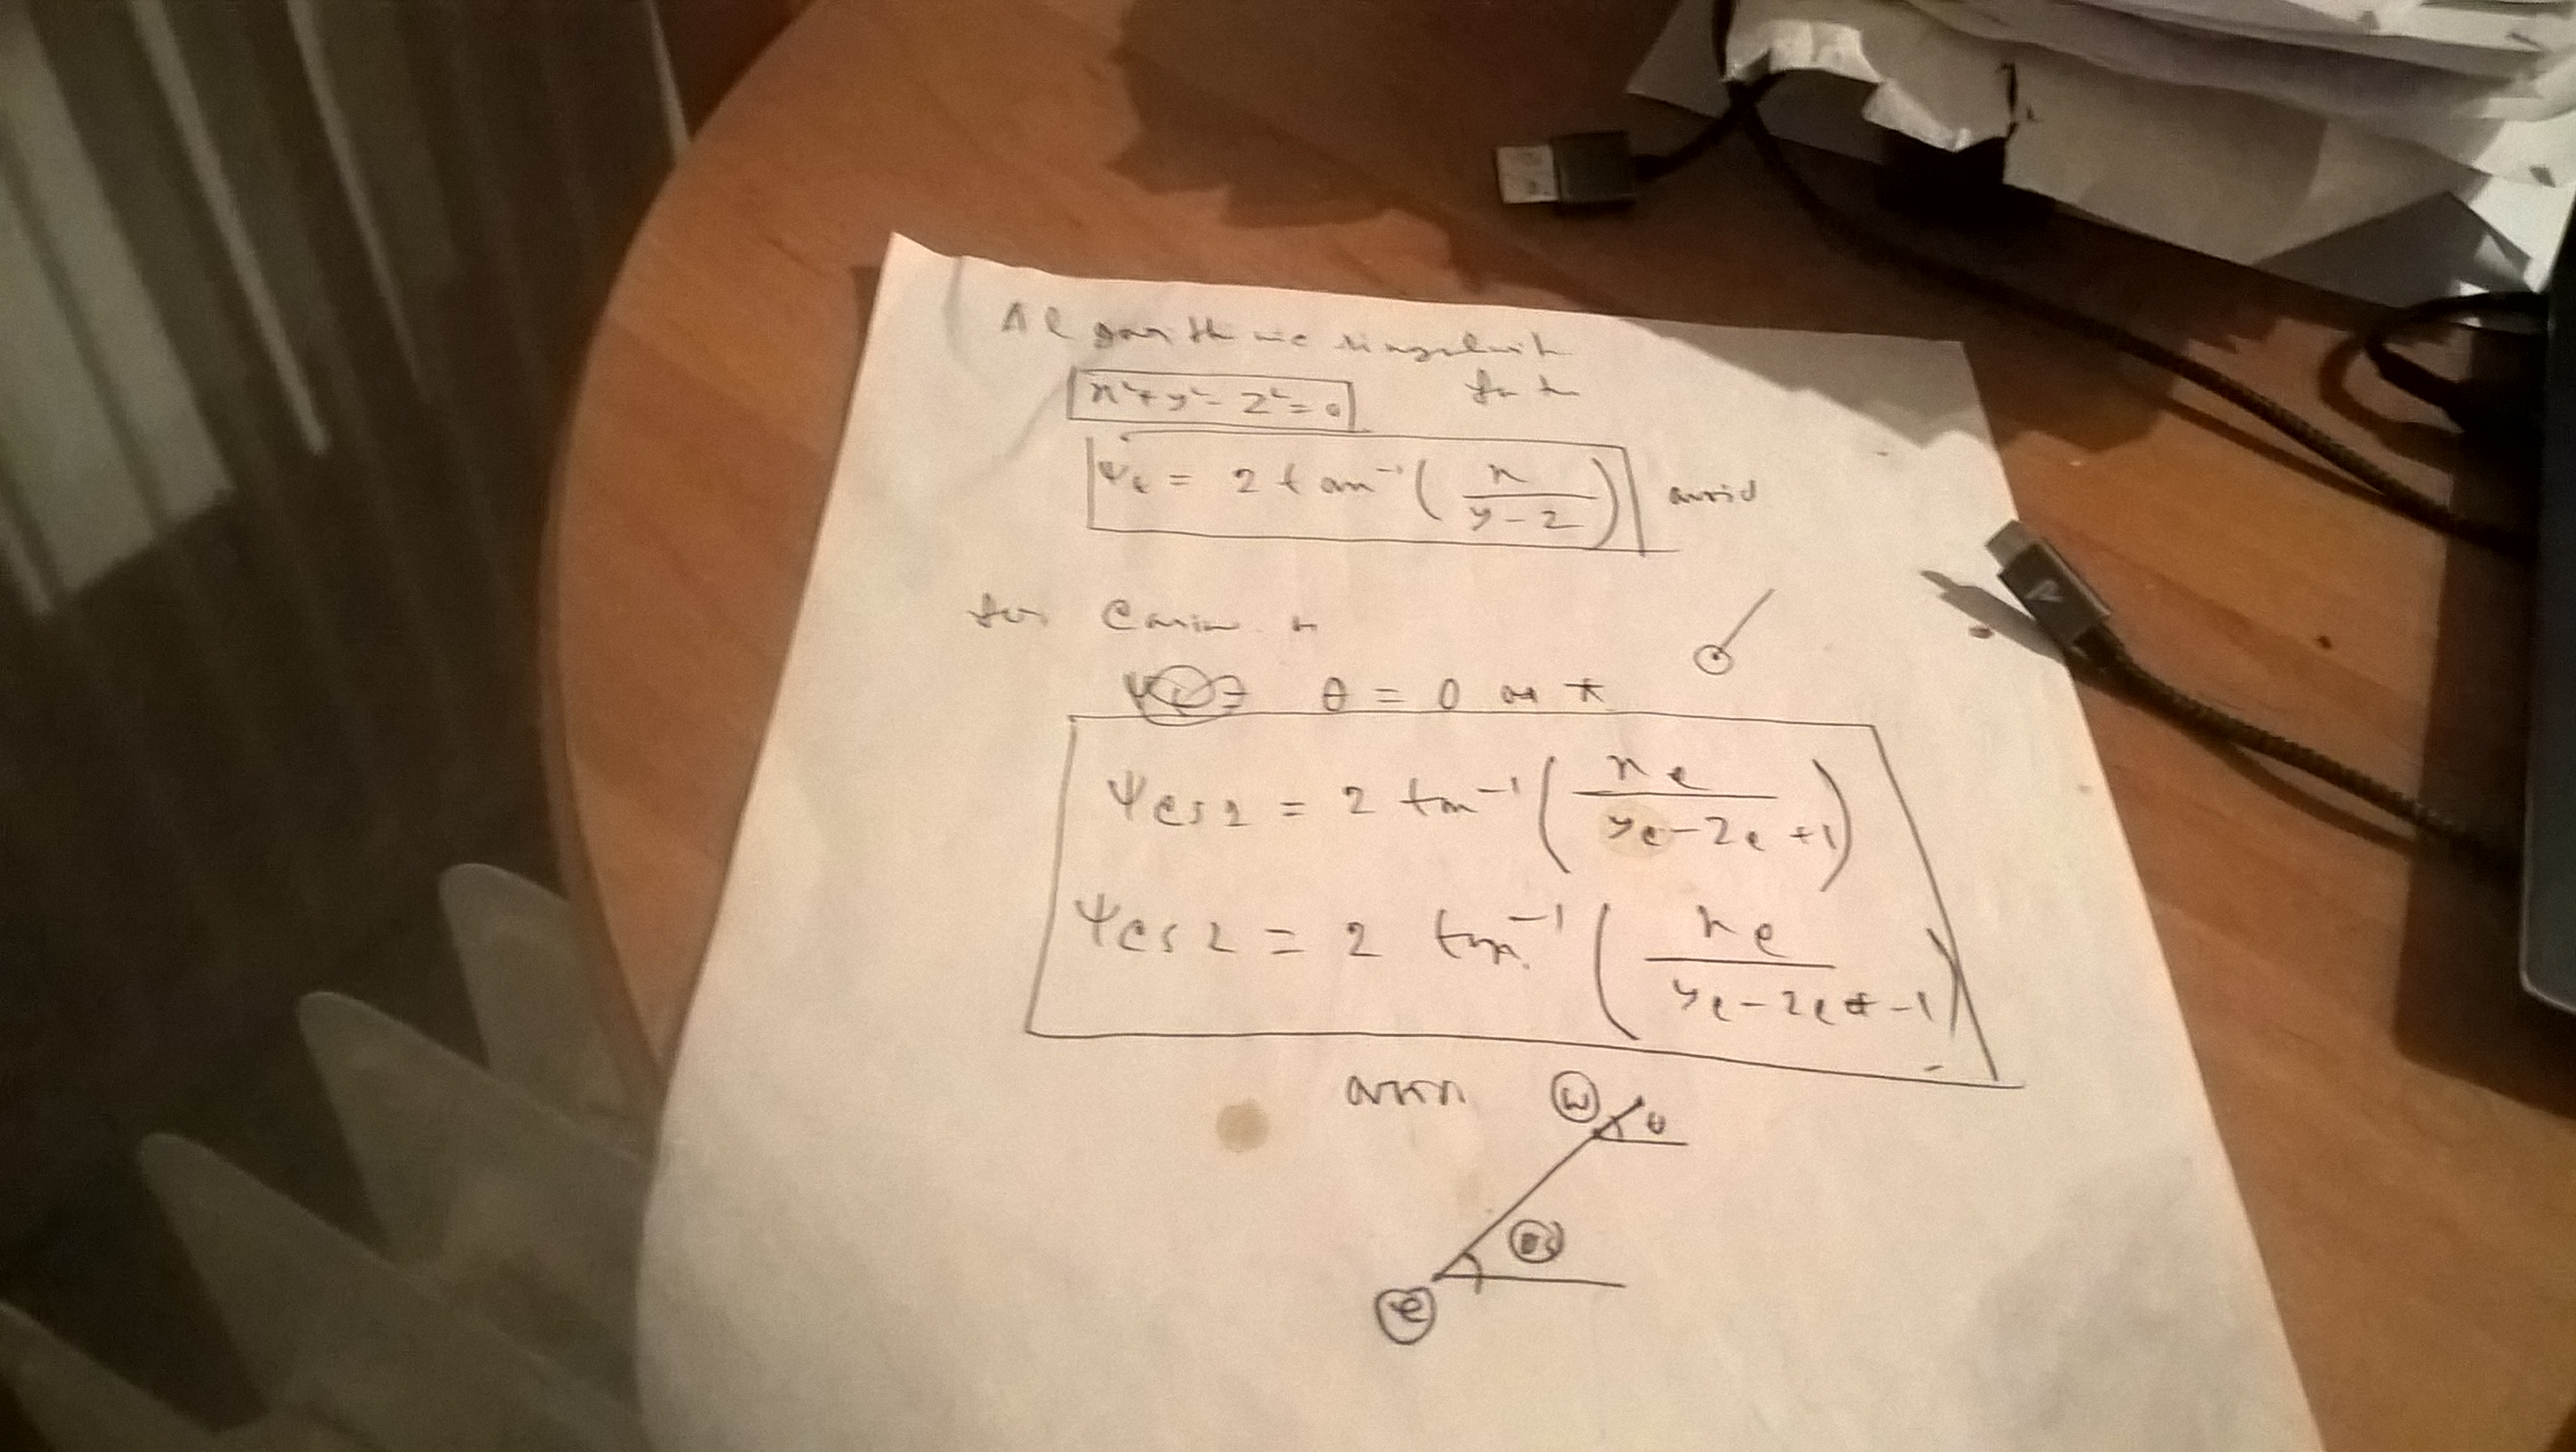 Algorithmic singularit
x² + y² - z² = 0
Ψe = 2 tan⁻¹ ( x / (y - z) ) avoid
for
θ = 0 or π
Ψes2 = 2 tan⁻¹ ( xe / (ye - ze + 1) )
Ψes2 = 2 tan⁻¹ ( xe / (ye - ze + -1) )
W θ
e